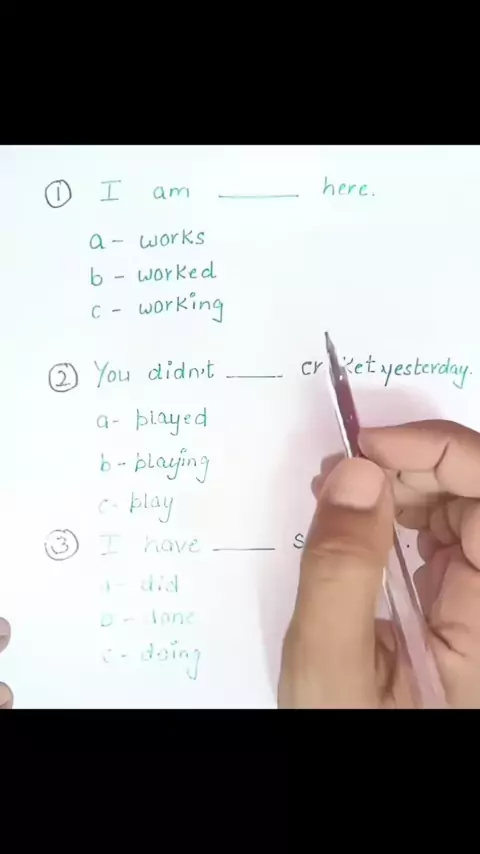 ① I am ______ here.
a - works
b - worked
c - working
② You didn't _____ cricket yesterday.
a - played
b - playing
c - play
③ I have _____
a - did
b - done
c - doing